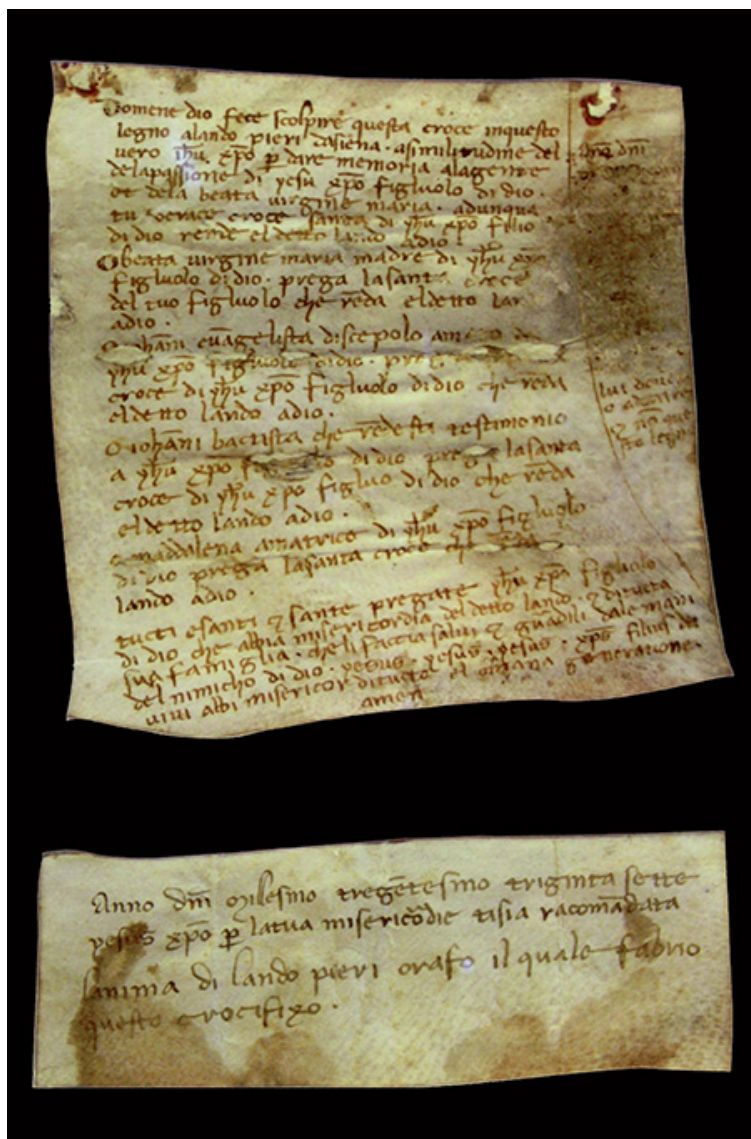 Domene dio fece scolpire questa croce inquesto
legno alando pieri dasiena · asimilitudine del
vero yhu xpo p dare memoria alagente
delapassione di yesu xpo figluolo di dio ·
et dela beata virgine maria · adunqua
tu verace croce santa di yhu xpo filio
di dio rende eldetto lando adio ·
O beata virgine maria madre di yhu xpo
figluolo di dio · prega lasanta croce
del tuo figluolo che reda eldetto lan
adio ·
evagelista discepolo
yhu xpo figluolo didio ·
croce di yhu xpo figluolo didio che reda
eldetto lando adio ·
Giohani bactista che redesti testimonio
a yhu xpo di dio prega lasanta
croce di yhu xpo figluo di dio che reda
eldetto lando adio ·
maddalena amatrice di yhu xpo figluolo
di dio prega lasanta croce che reda
lando adio ·
tucti esanti z sante pregate yhu xpo figluolo
di dio che abbia misericordia deldetto lando · z dituta
sua famiglia · che li faccia salvi z guardili dale mani
del nimicho di dio · yesus · yesus · yesus · xps filius dei
vivi abbi misericor dituta el umana generatione ·
amen
dni
lui
z no que
sto legno
Anno dni milesmo tregetesmo triginta sette
yesus xpo p latua misericordie tisia racomadata
lanima di lando pieri orafo il quale fabrio
questo crocifixo ·